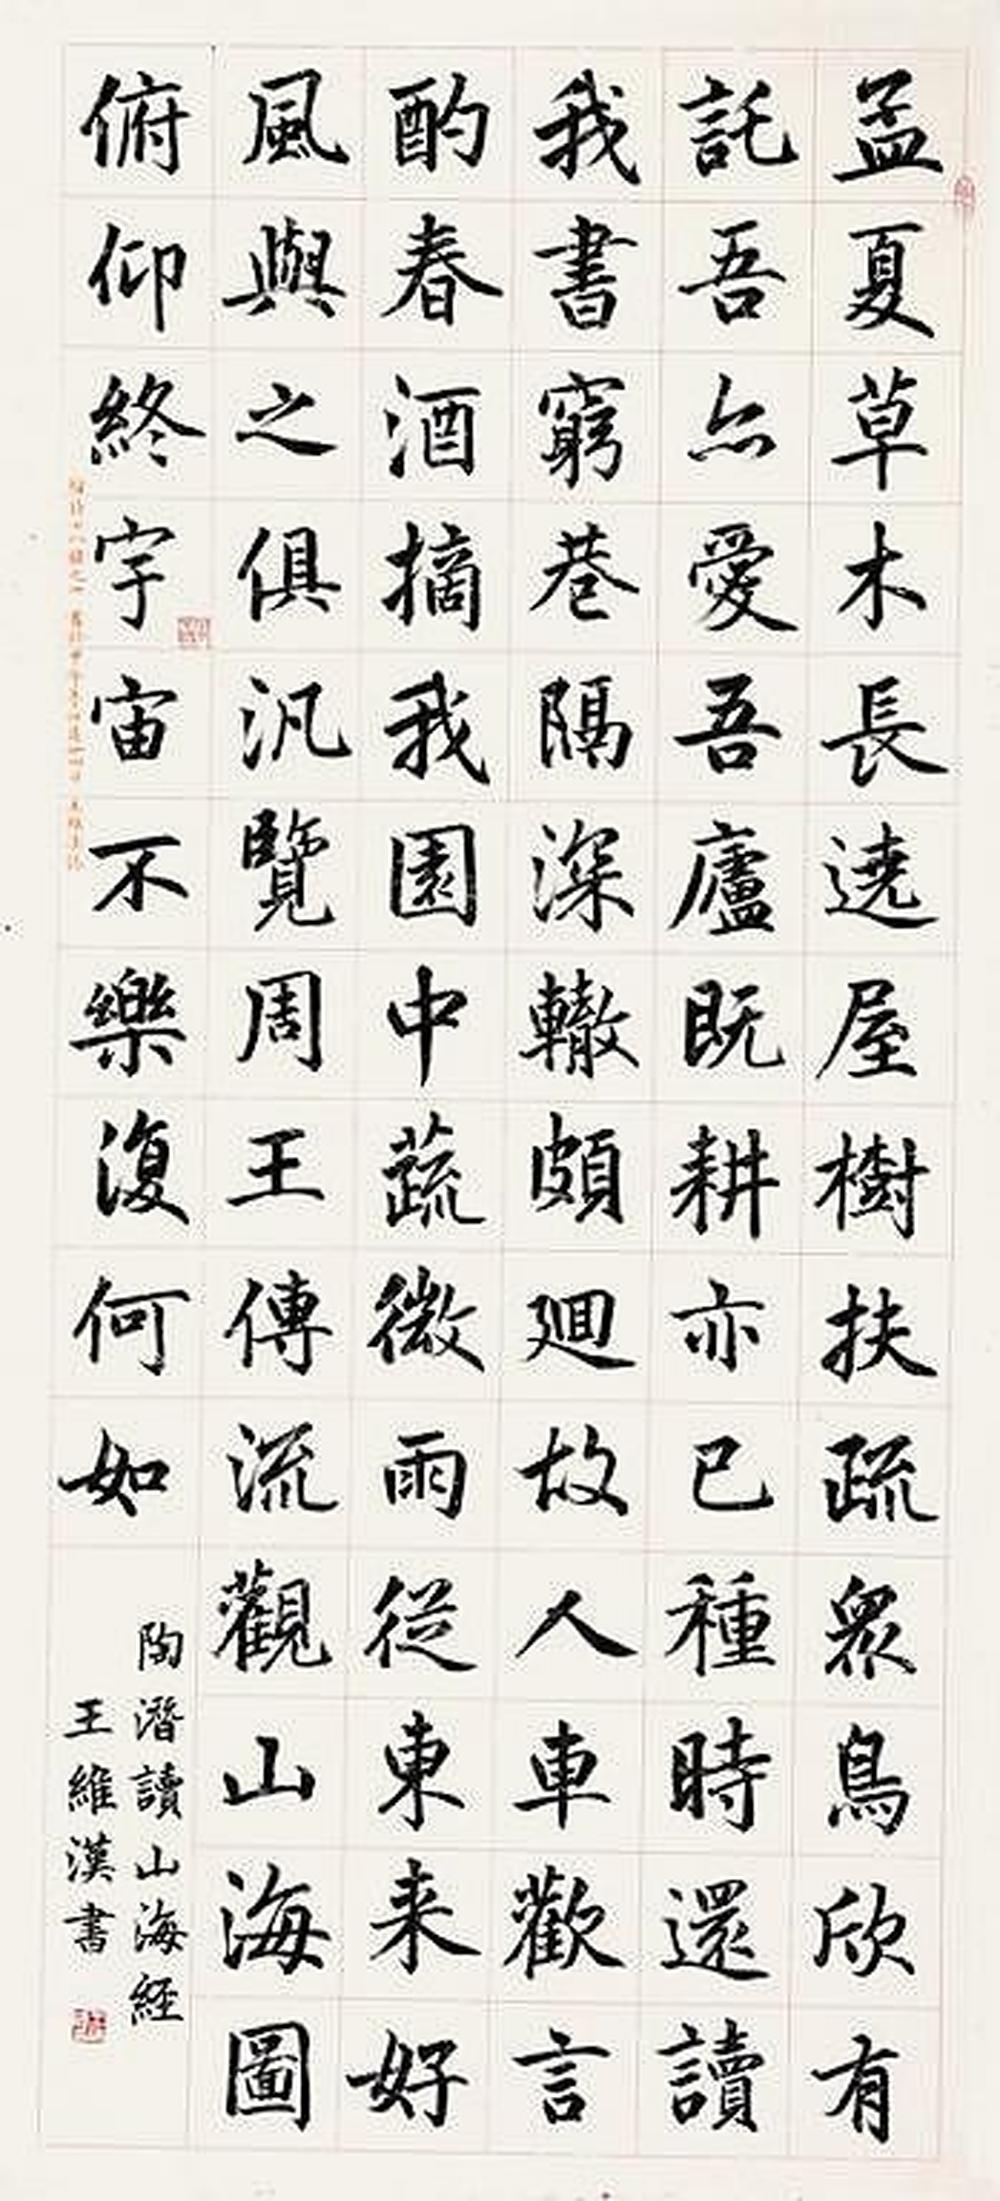 孟夏草木長遶屋樹扶疏眾鳥欣有
託吾亦愛吾廬既耕亦已種時還讀
我書窮巷隔深轍頗廻故人車歡言
酌春酒摘我園中蔬微雨從東来好
風與之俱汎覽周王傳流觀山海圖
俯仰終宇宙不樂復何如
陶潛讀山海経
王維漢書